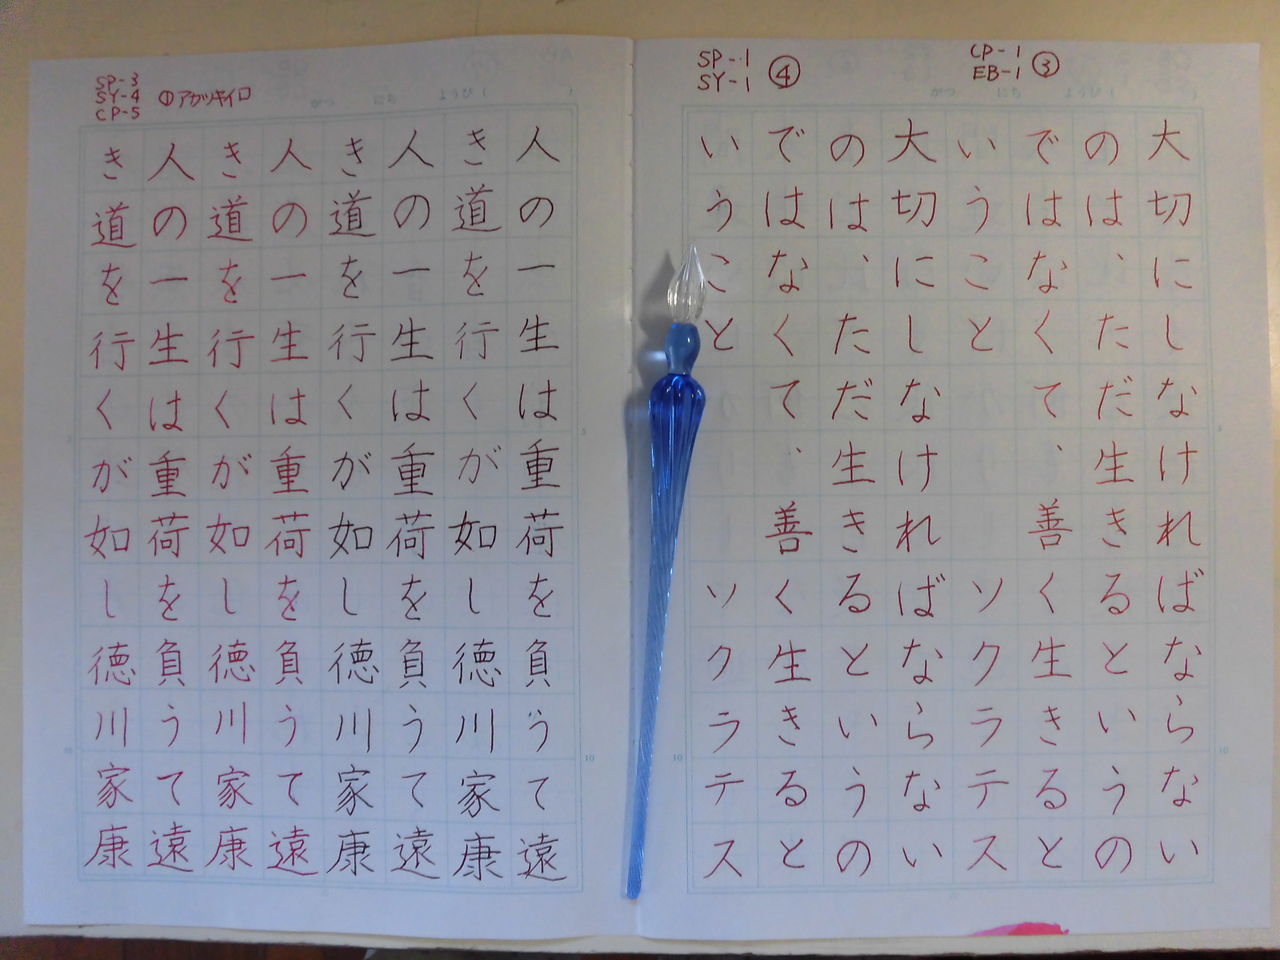 CP-1
EB-1 ③
がつ にち ようび ( )
大切にしなければならない
のは、ただ生きるというの
ではなくて、善く生きると
いうこと ソクラテス
SP-1
SY-1 ④
大切にしなければならない
のは、ただ生きるというの
ではなくて、善く生きると
いうこと ソクラテス
5
10
10
SP-3
SY-4
CP-5
①アカツキイロ
がつ にち ようび ( )
人の一生は重荷を負うて遠
き道を行くが如し徳川家康
人の一生は重荷を負うて遠
き道を行くが如し徳川家康
人の一生は重荷を負うて遠
き道を行くが如し徳川家康
人の一生は重荷を負うて遠
き道を行くが如し徳川家康
5
10
10